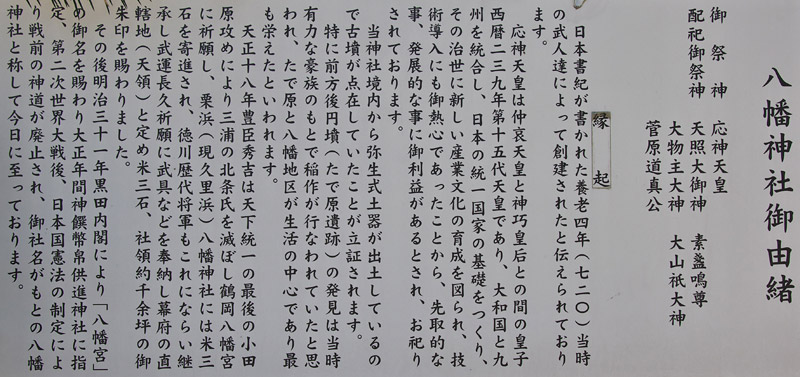 八幡神社御由緒
御祭神　応神天皇
配祀御祭神　天照大御神　素盞鳴尊
大物主大神　大山祇大神
菅原道真公
縁起
日本書紀が書かれた養老四年（七二〇）当時
の武人達によって創建されたと伝えられており
ます。
応神天皇は仲哀天皇と神功皇后との間の皇子
西暦二三九年第十五代天皇であり、大和国と九
州を統合し、日本の統一国家の基礎をつくり、
その治世に新しい産業文化の育成を図られ、技
術導入にも御熱心であったことから、先取的な
事、発展的な事に御利益があるとされ、お祀り
されております。
当神社境内から弥生式土器が出土しているの
で古墳が点在していたことが立証されます。
特に前方後円墳（たで原遺跡）の発見は当時
有力な豪族のもとで稲作が行なわれていたと思
われ、たで原と八幡地区が生活の中心であり最
も栄えたといわれます。
天正十八年豊臣秀吉は天下統一の最後の小田
原攻めにより三浦の北条氏を滅ぼし鶴岡八幡宮
に祈願し、栗浜（現久里浜）八幡神社には米三
石を寄進され、徳川歴代将軍もこれにならい継
承し武運長久祈願に武具などを奉納し幕府の直
轄地（天領）と定め米三石、社領約千余坪の御
朱印を賜わりました。
その後明治三十一年黒田内閣により「八幡宮」
の御名を賜わり大正年間神饌幣帛供進神社に指
定、第二次世界大戦後、日本国憲法の制定によ
り戦前の神道が廃止され、御社名がもとの八幡
神社と称して今日に至っております。